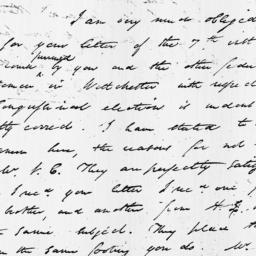 I am very much obliged
for your letter of the 7th inst
pursued
by you and the other feder
in Westchester with respect
Congressional election is undoubt
correct. I have stated to
here, the reasons for not
Mr. V. C. They are perfectly satis
I rec.d your letter I rec.d one f
brother, and another from H.
the same subject. They place th
on the same footing you do. Mr.